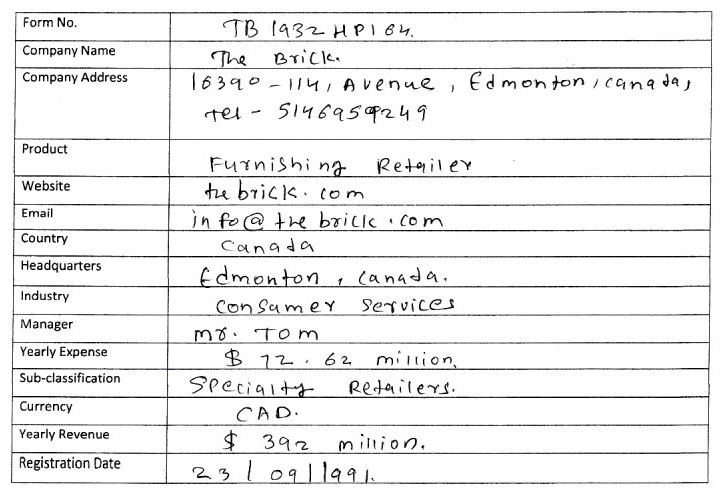 Form No. TB 1932HP164.
Company Name The Brick.
Company Address 16390-114, Avenue, Edmonton, canada,
Tel - 5146959249
Product Furnishing Retailer
Website thebrick.com
Email info@thebrick.com
Country Canada
Headquarters Edmonton, Canada.
Industry Consumer Services
Manager mr. Tom
Yearly Expense $ 72.62 million.
Sub-classification Specialty Retailers.
Currency CAD.
Yearly Revenue $ 392 million.
Registration Date 23/09/1991.